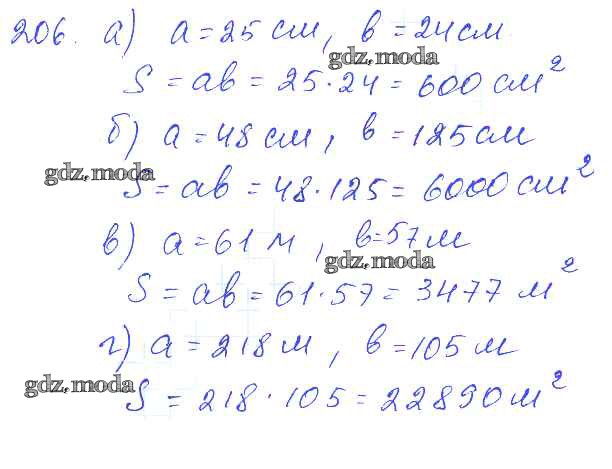 206. а) a = 25 см, в = 24 см.
gdz.moda
S = ab = 25 · 24 = 600 см²
б) a = 48 см, в = 125 см
gdz.moda
S = ab = 48 · 125 = 6000 см²
в) a = 61 м, в = 57 м
gdz.moda
S = ab = 61 · 57 = 3477 м²
г) a = 218 м, в = 105 м
gdz.moda
S = 218 · 105 = 22890 м²